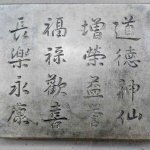 道德神仙
增榮益譽
福祿歡喜
長樂永康